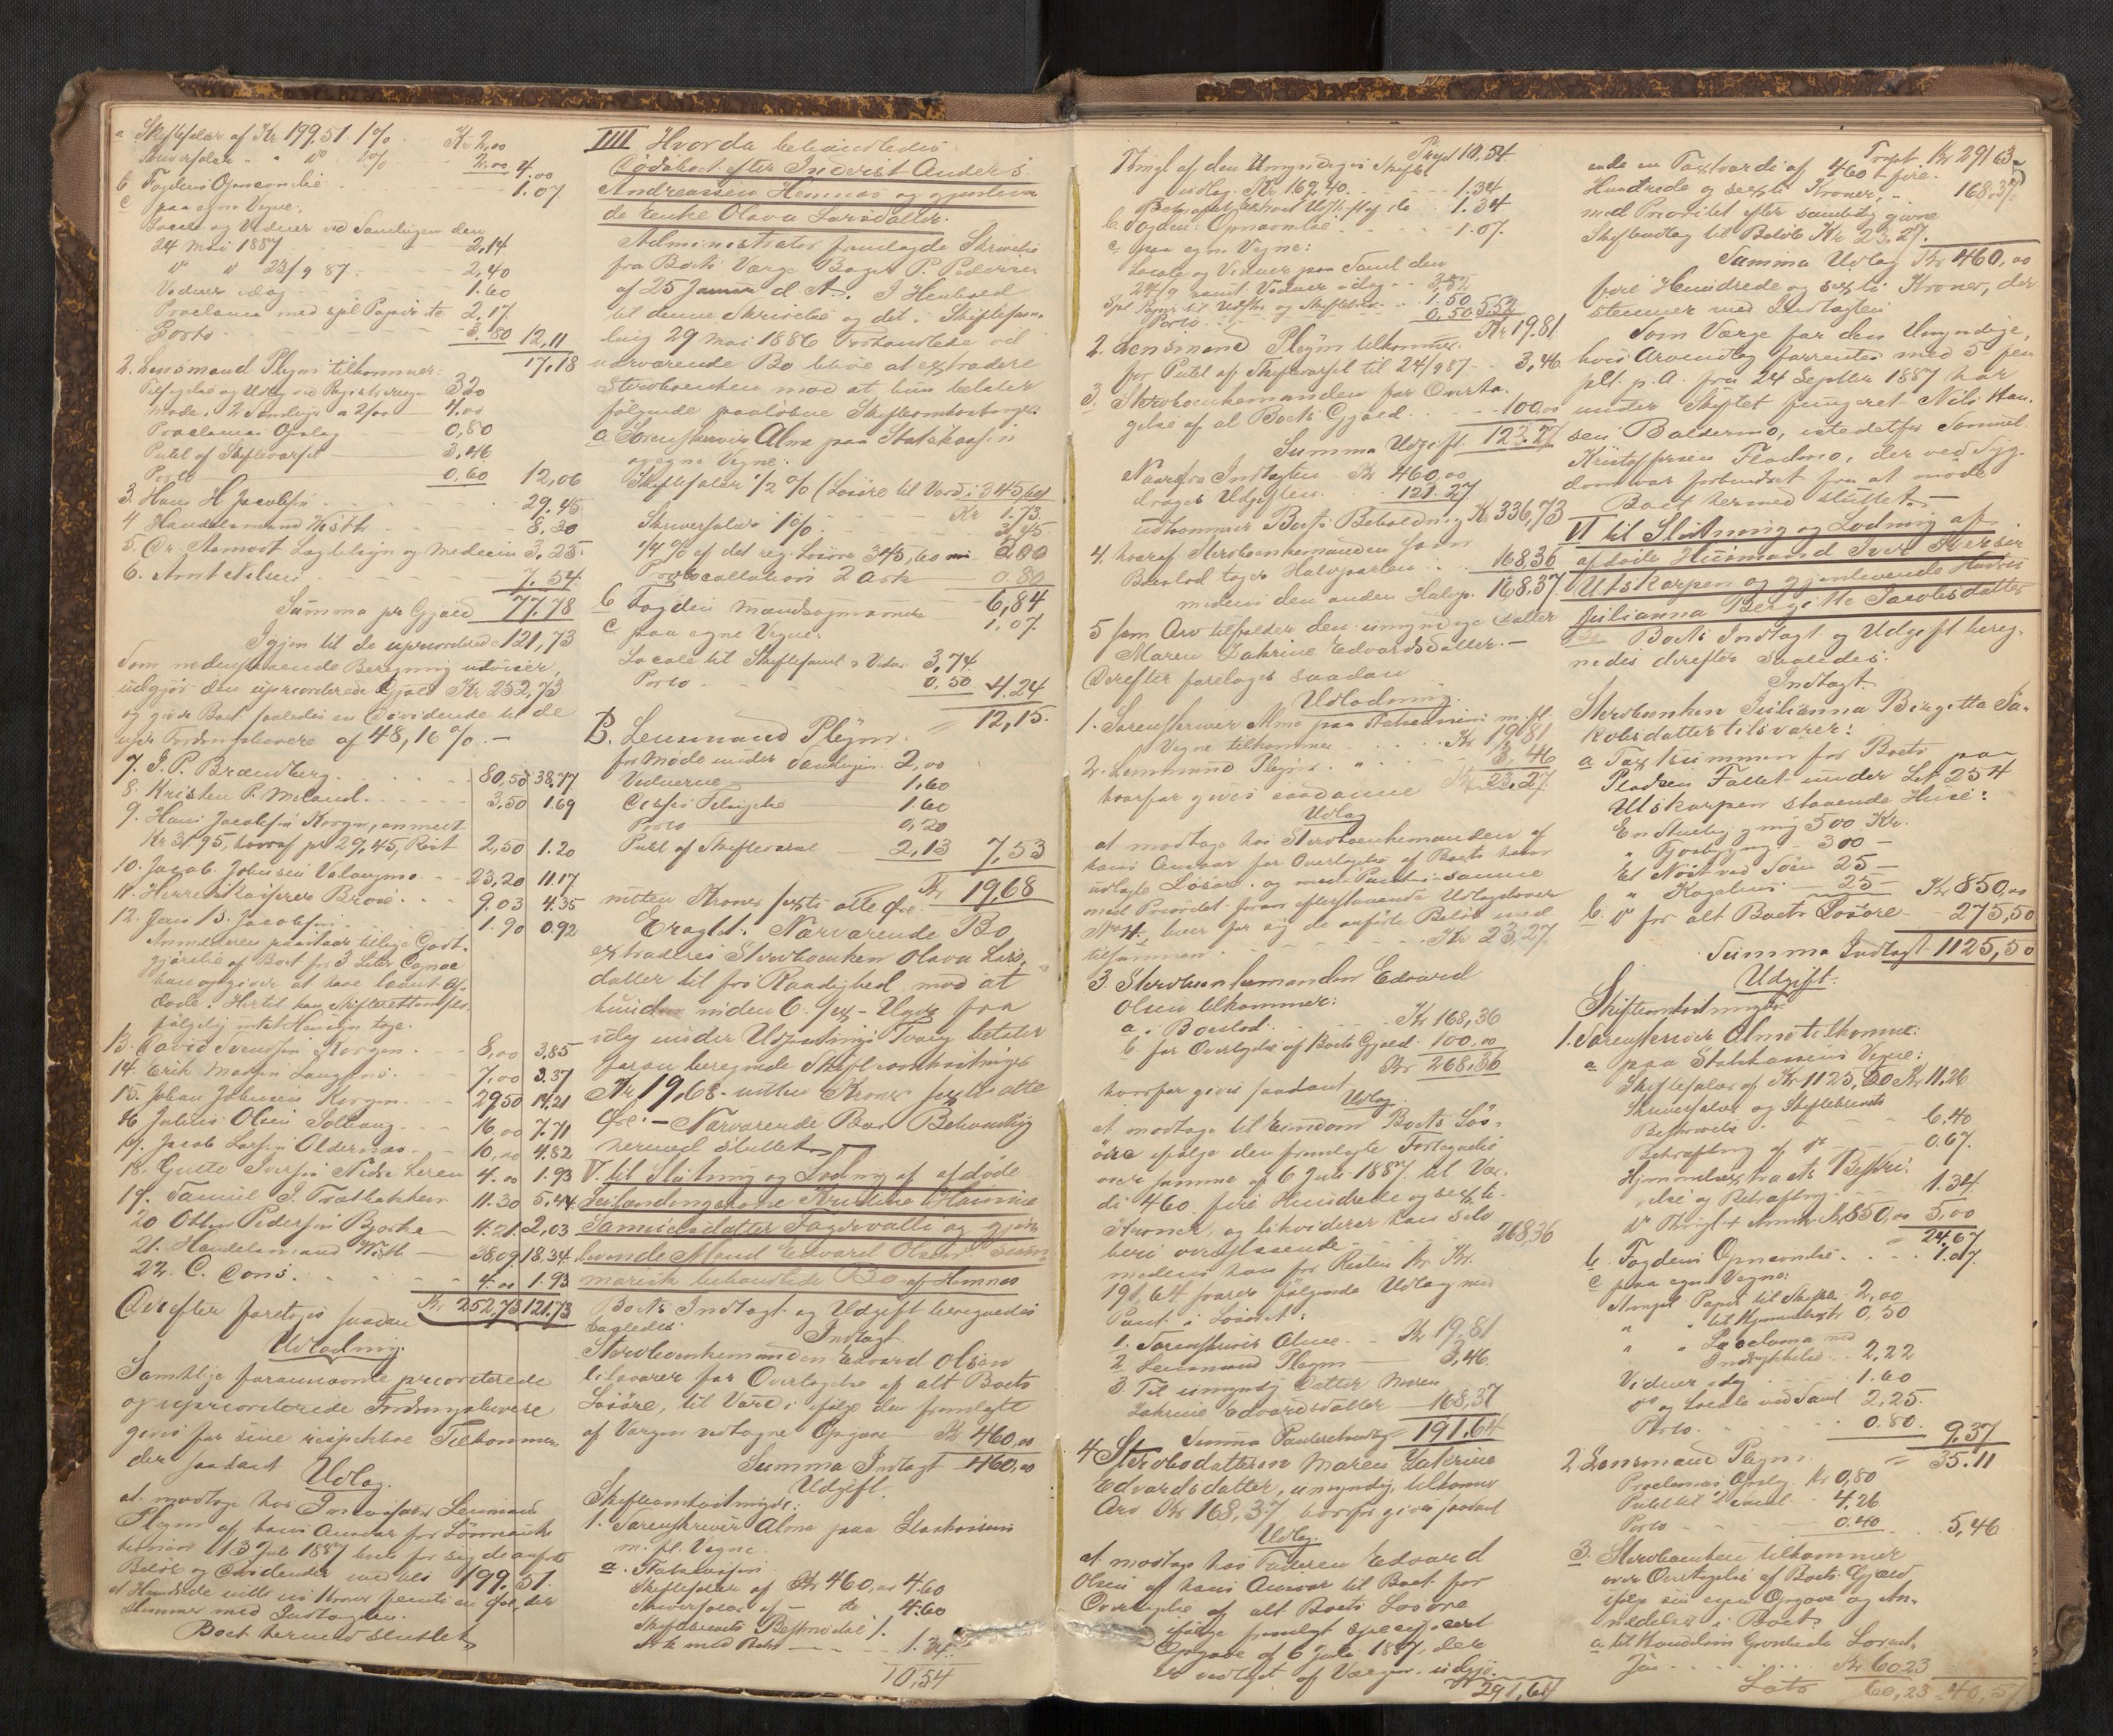 a Skiftesalær af Kr 199,51 1% Kr 2,00
Skriversalær " " do 1% 2,00 4,00
b Fogdens Opnævnelse 1.07
c paa egne Vegne:
Locale og Vidner ved Samlingen den
24 Mai 1887 2,14
do do 23/9 87 2,40
Vidner idag 1.60
Proclama med spl Papir 2,17
Porto 3,80 12,11
17,18
2. Lensmand Pleym tilkommer:
ved Registreringen 320
Møde i 2 Samlinger a 2/00 4,00
Proclamas Opslag 0,80
Publ af Skiftevarsel 3,46
Porto 0,60 12,06
3. Hans H Jacobsen 29,45
4 Handelsmand Wisth 8.30
5. Dr. Aamodt Lægetilsyn og Medecin 3.25
6. Arnt Nilsen 7.54
Summa pr Gjæld 77.78
Igjen til de upriorterede 121,73
Som nedenstaaende Beregning udviser,
udgjør den upriorterede Gjæld Kr 252,73
og giver Boet saaledes en Dividende til de
Fordringshavere af 48,16 %. –
7. I. P. Brændberg 80,50 38,77
8. Kristen P. Meland 3,50 1.69
9. Hans Jacobsen Korgen, anmeldt
Kr 31,95, hvoraf pr 29,45, Rest 2,50 1.20
10. Jacob Johnsen Valangmo 23,20 11.17
11. Herredskasserer Brose 9.03 4.35
12. Jens B. Jacobsen 1.90 0,92
Anmelderen paastaar tillige Godt-
gjørelse af Boet for 3 Liter Cognac
han opgiver at have laant Af-
døde. Hertil kan Skifteretten
følgelig intet Hensyn tage.
13. David Svendsen Korgen 8,00 3,85
14. Erik Madsen 7,00 3.37
15. Johan Johnsen Korgen 29,50 14.21
16 Julius Olsen 16,00 7.71
17. Jacob Larsen Oldernæs 10,00 4.82
18. Gutte Iversen Nedre Leren 4.00 1.93
19. Samuel I. Trætbakken 11.30 5,44
20 Otter Pedersen Bjerke 4.21 2,03
21. Handelsmand Wisth 38,09 18.34
22. C. Dons 4.00 1.93
Kr 252,73 121,73
Derefter foretoges saadan
Udlodning.
Samtlige forannævnte priorterede
og upriorterede Fordringshavere
gives for sine respektive Tilkommen
der saadant
Udlag.
at modtage hos Incassator Lensmand
Pleym af hans Ansvar for
13 Juli 1887 hver for sig de anførte
Beløb og Dividender med tils 199,51.
et Hundrede nitti ni Kroner femti en Øre, der
stemmer med Indtægten.
Boet hermed sluttet
IIII Hvorda behandledes
Dødsboet efter Inderst Anders
Andreassen Hemnes og gjenleven-
de Enke Olava Larsdatter.
Administrator fremlagde Skrivelse
fra Boets Værge Bager P. Pedersen
af 25 Januar d. A. I Henhold
til denne Skrivelse og det i Skiftesam-
ling 29 Mai 1886 Forhandlede vil
nærværende Bo blive at extradere
Sterboenken mod at hun betaler
følgende paaløbne Skifteomkostninger.
a. Sorenskriver Alme paa Statskassens
og egne Vegne:
Skiftesalær 1/2 % (Løsøre til Værdi 345,60)
Kr 1.73
Skriversalær 1% 3,45
1/4 % af det reg. Løsøre 345,60
Protocollation 2 Ark 0.80
6,84
b Fogden Mændsopnævnelse 1,07
c. paa egne Vegne:
Locale til Skiftesaml & Vidner 3,74
Porto 0,50 4.24
12,15.
B. Lensmand Pleym.
for Møde under Samlingen 2,00
Vidnerne 1,60
1.60
Porto 0,20
Publ af Skiftevarsel 2,13 7,53
nitten Kroner sexti otte Øre. Kr 19,68
Eragtet: Nærværende Bo
extraderes Sterboenken Olava Lars-
datter til fri Raadighed mod at
hun inden 6 – sex – Uger fra
idag under Udpantnings Tvang betaler
foran beregnede Skifteomkostninger
Kr 19,68 – nitten Kroner sexti otte
Øre. – Nærværende Boes Behandling
hermed sluttet.
V. til Slutning og Lodning af afdøde
Kristine Hannine
Samuelsdatter Fagervolli og gjen-
levende Mand Edvard Olsens sum-
marisk behandlede Bo af Hemnes
Boets Indtægt og Udgift beregnedes
saaledes:
Indtægt
Sterboenkemanden Edvard Olsen
tilsvarer for Overtagelse af alt Boets
Løsøre, til Værdi ifølge den fremlagte
af Værgen vedtagne Opgave Kr 460,00
Summa Indtægt 460,00
Udgift.
Skifteomkostninger:
1. Sorenskriver Alme paa Statskassens
m. fl. Vegne.
a. Statskassen
Skiftesalær af Kr 460,00 4.60
Skriversalær af – do 4.60
Skiftebrevets Beskrivelse 1.
Ark med 1.34
10,54
Trspt 10,54
Thingl af den Umyndiges Skifte-
udlæg. Kr 169,40 1.34
Bekræftet Extract Udskrift af do 1.34
b. Fogden. Opnævnelse 1.07.
c. paa egne Vegne:
Locale og Vidner paa Saml den
24/9 samt Vidner idag 3,52
Spl Papir til Udskr og Skiftebrev 1.50
Porto 0,50 5.52
Kr 19.81
2. Lensmand Pleym tilkommer
for Publ af Skiftevarsel til 24/9 87 3,46
3. Sterboenkemanden for Overta-
gelse af al Boets Gjæld 100,00
Summa Udgift 123.27
Naar fra Indtægten Kr 460,00
drages Udgiften 123.27
udkommer Boets Beholdning Kr 336,73
4. hvoraf Sterboenkemanden som
Boeslod tager Halvparten 168,36
medens den anden Halvp. 168,37.
5 som Arv tilfalder den umyndige Datter
Maren Zakrine Edvardsdatter. –
Derefter foretoges saadan
Udlodning.
1. Sorenskriver Alme paa Statskassens m. fl.
Vegne tilkommer Kr 19.81
2. Lensmand Pleym " 3,46
hvorfor gives saadanne Kr 23.27.
Udlæg
at modtage hos Sterboenkemanden af
hans Ansvar for Overtagelse af Boets ham
udlagte Løsøre og med Pant i samme
med Prioritet foran efterstaaende Udlægshaver
No 4. hver for sig de anførte Beløb med
tilsammen Kr 23,27
3. Sterboenkemanden Edvard
Olsen tilkommer:
a. i Boeslod Kr 168,36
b. for Overtagelse af Boets Gjæld 100,00
Kr 268,36
hvorfor gives saadant
Udlæg.
at modtage til Eiendom Boets Løs-
øre ifølge den fremlagte Fortegnelse
over samme af 6 Juli 1887 til Vær-
di 460 fire Hundrede og sexti
Kroner, og likviderer han selv
heri ovenstaaende 268,36
medens han for Resten Kr
191,64 svarer følgende Udlæg med
Pant i Løsøret:
1. Sorenskriver Alme Kr 19,81
2. Lensmand Pleym 3,46
3. Til umyndig Datter Maren
Zakrine Edvardsdatter 168,37
Summa Panteudlæg 191.64
4 Sterbodatteren Maren Zakrine
Edvardsdatter, umyndig, tilkommer
Arv Kr 168,37 hvorfor gives saadant
Udlæg.
at modtage hos Faderen Edvard
Olsen af hans Ansvar til Boet for
Overtagelse af alt Boets Løsøre
ifølge fremlagt specificert
Opgave af 6 Juli 1887, der
er vedtaget af Værgen, udgjø-
291,64
Trspt. Kr 291 63
ende en Taxtværdi af 460 fire
Hundrede og sexti Kroner, 168,37
med Prioritet efter samtidig givne
Skifteudlæg til Beløb Kr 23.27.
Summa Udlæg Kr 460,00
fire Hundrede og sexti Kroner, der
stemmer med Indtægten
Som Værge for den Umyndige,
hvis Arveudlæg forrentes med 5 pro
pCt. p. A. fra 24 Septbr 1887 har
under Skiftet fungeret Nils Han-
sen Baldermo, istedetfor Samuel
Kristoffersen Fladmo, der ved Syg-
dom var forhindret fra at møde
Boet hermed sluttet. –
VI til Slutning og Lodning af
afdøde Husmand Iver Iversen
Utskarpen og gjenlevende Hustru
Julianna Bergitte Jacobsdatter
Boets Indtægt og Udgift bereg-
nedes derefter saaledes:
Indtægt.
Sterboenken Julianna Bergitta Ja-
kobsdatter tilsvarer:
a Taxtsummen for Boets paa
Pladsen Fallet under Lot 254
Utskarpen staaende Huse:
En Stuebygning 500 Kr.
" Fjøsbygning 300 –
Et Nøst ved Søen 25 –
" Kogehus 25 – Kr 850,00
b. do for alt Boets Løsøre 275,50
Summa Indtægt 1125,50
Udgift.
Skifteomkostninger
1. Sorenskriver Alme tilkommer:
a paa Statskassens Vegne:
Skiftesalær af Kr 1125,50 Kr 11,26
Skriversalær og Skiftebrevets
Beskrivelse 6.40
Bekræftning af do 0.67.
Hjemmelsextractets Beskri-
velse og Bekræftning 1.34
do Thingl + Kr 850,00 5,00
24,67
b. Fogdens Opnævnelse 1.07.
c paa egne Vegne:
Stempl Papir til Skiftebr 2,00
" " til Hjemmelsextr 0,50
" " Proclama med
Indrykkelse 2,22
Vidner idag 1.60
do og Locale ved Saml 2,25.
Porto 0.80. 9.37
35.11
2. Lensmand Pleym.
Proclamas Opslag Kr 0,80
Publ til 2 Saml 4,26
Porto 0.40 5,46
3. Sterboenken tilkommer
over Overtagelse af Boets Gjæld
ifølge sin egen Opgave og An-
meldelser i Boet:
a til Handelsm Lorent-
Jen Kr 60.23
Lats 60,23 40,57